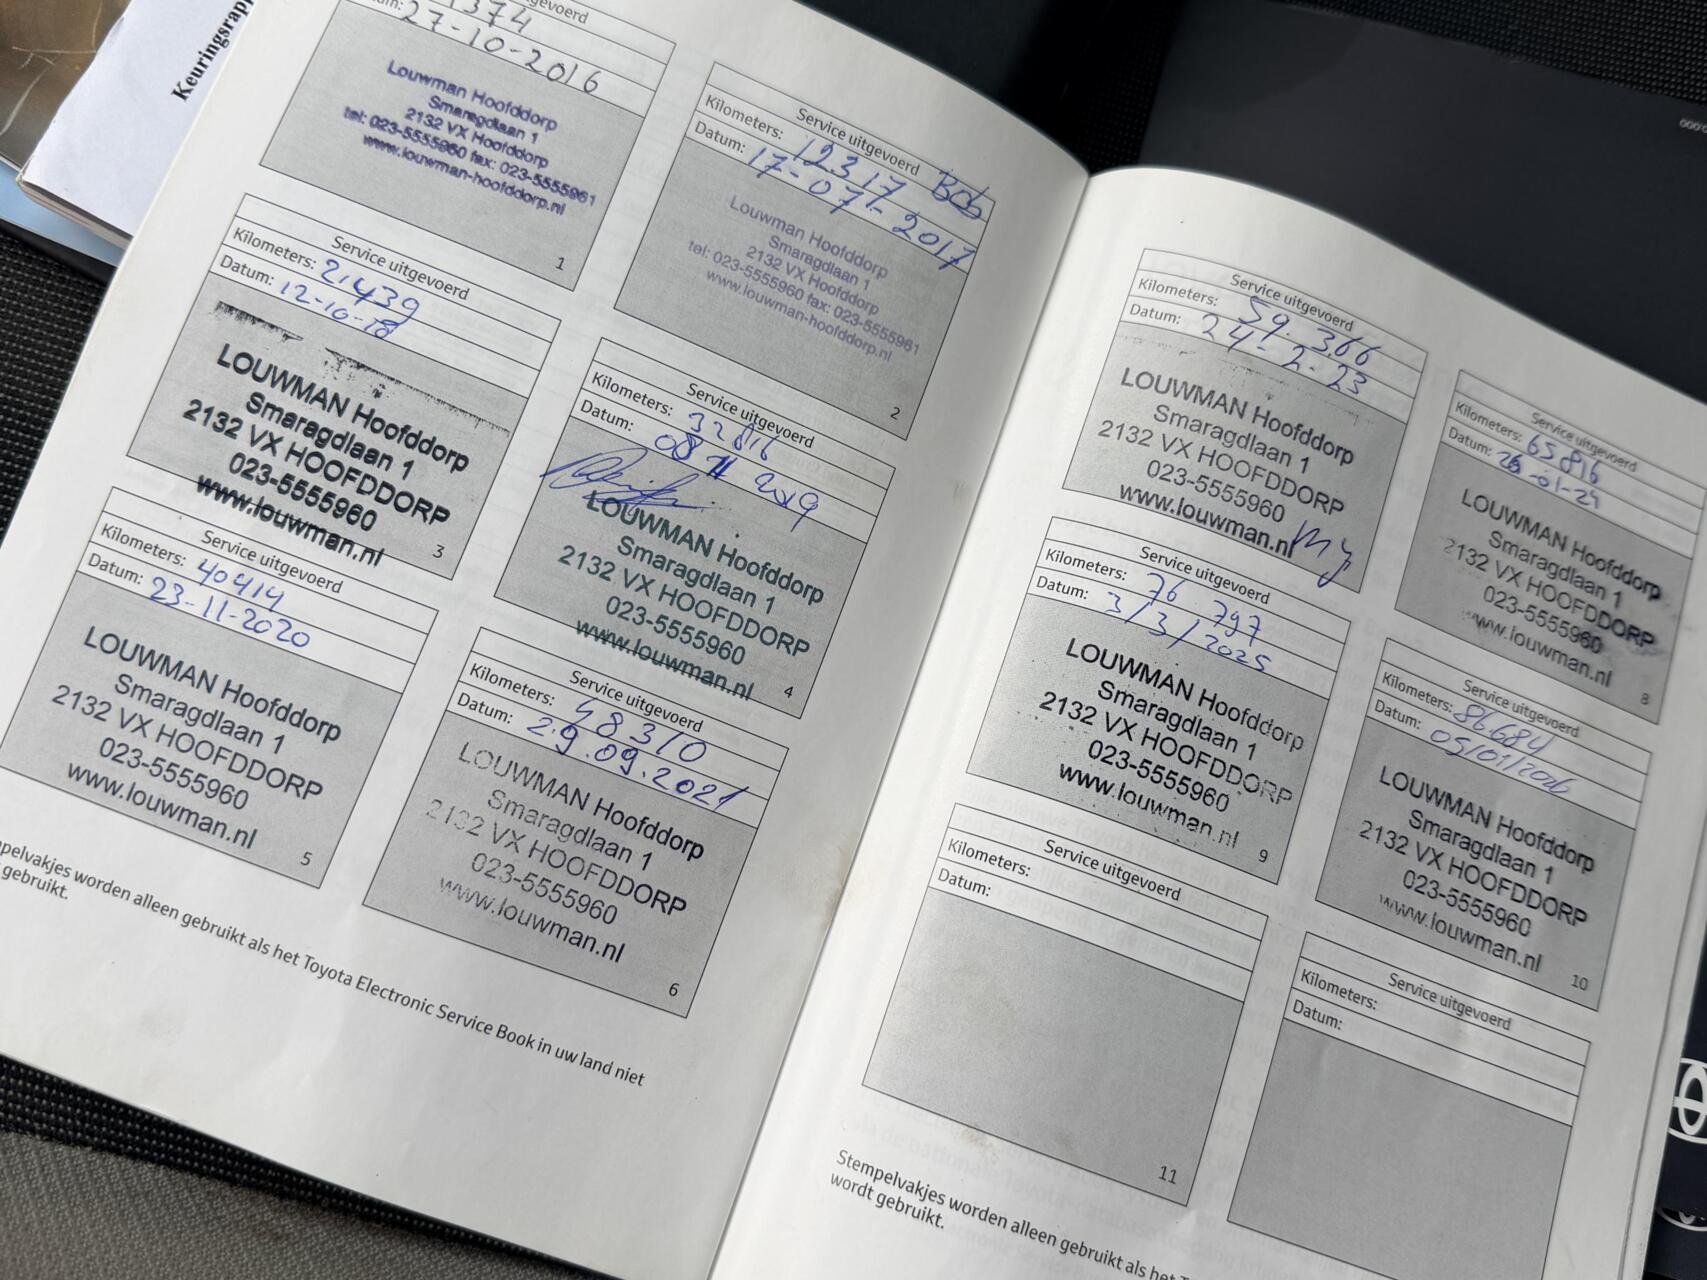 Keuringsrapp
1374
27-10-2016
Louwman Hoofddorp
Smaragdlaan 1
2132 VX Hoofddorp
tel: 023-5555960 fax: 023-5555961
www.louwman-hoofddorp.nl
1
Service uitgevoerd
Kilometers: 12317 Bob
Datum: 17-07-2017
Louwman Hoofddorp
Smaragdlaan 1
2132 VX Hoofddorp
tel: 023-5555960 fax: 023-5555961
www.louwman-hoofddorp.nl
2
Service uitgevoerd
Kilometers: 21439
Datum: 12-10-18
LOUWMAN Hoofddorp
Smaragdlaan 1
2132 VX HOOFDDORP
023-5555960
www.louwman.nl
3
Service uitgevoerd
Kilometers: 32816
Datum: 08 11 2019
LOUWMAN Hoofddorp
Smaragdlaan 1
2132 VX HOOFDDORP
023-5555960
www.louwman.nl
4
Service uitgevoerd
Kilometers: 40414
Datum: 23-11-2020
LOUWMAN Hoofddorp
Smaragdlaan 1
2132 VX HOOFDDORP
023-5555960
www.louwman.nl
5
Service uitgevoerd
Kilometers: 48310
Datum: 29.09.2021
LOUWMAN Hoofddorp
Smaragdlaan 1
2132 VX HOOFDDORP
023-5555960
www.louwman.nl
6
pelvakjes worden alleen gebruikt als het Toyota Electronic Service Book in uw land niet
gebruikt.
Service uitgevoerd
Kilometers: 59.366
Datum: 24-2-23
LOUWMAN Hoofddorp
Smaragdlaan 1
2132 VX HOOFDDORP
023-5555960
www.louwman.nl
Service uitgevoerd
Kilometers: 65816
Datum: 26-01-24
LOUWMAN Hoofddorp
Smaragdlaan 1
2132 VX HOOFDDORP
023-5555960
www.louwman.nl
8
Service uitgevoerd
Kilometers: 76.797
Datum: 3/3/2025
LOUWMAN Hoofddorp
Smaragdlaan 1
2132 VX HOOFDDORP
023-5555960
www.louwman.nl
9
Service uitgevoerd
Kilometers: 86684
Datum: 05/01/2026
LOUWMAN Hoofddorp
Smaragdlaan 1
2132 VX HOOFDDORP
023-5555960
www.louwman.nl
10
Service uitgevoerd
Kilometers:
Datum:
11
Service uitgevoerd
Kilometers:
Datum:
Stempelvakjes worden alleen gebruikt als het T
wordt gebruikt.